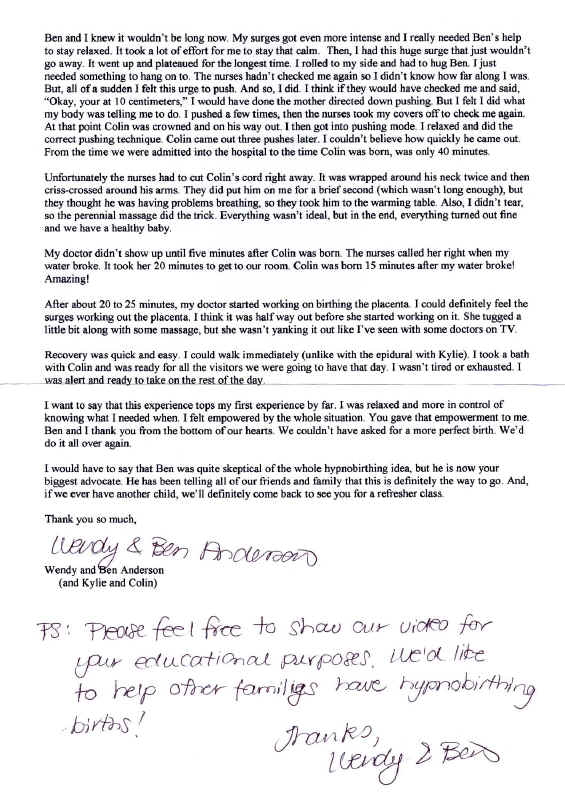 Ben and I knew it wouldn't be long now. My surges got even more intense and I really needed Ben's help
to stay relaxed. It took a lot of effort for me to stay that calm. Then, I had this huge surge that just wouldn't
go away. It went up and plateaued for the longest time. I rolled to my side and had to hug Ben. I just
needed something to hang on to. The nurses hadn't checked me again so I didn't know how far along I was.
But, all of a sudden I felt this urge to push. And so, I did. I think if they would have checked me and said,
"Okay, your at 10 centimeters," I would have done the mother directed down pushing. But I felt I did what
my body was telling me to do. I pushed a few times, then the nurses took my covers off to check me again.
At that point Colin was crowned and on his way out. I then got into pushing mode. I relaxed and did the
correct pushing technique. Colin came out three pushes later. I couldn't believe how quickly he came out.
From the time we were admitted into the hospital to the time Colin was born, was only 40 minutes.
Unfortunately the nurses had to cut Colin's cord right away. It was wrapped around his neck twice and then
criss-crossed around his arms. They did put him on me for a brief second (which wasn't long enough), but
they thought he was having problems breathing, so they took him to the warming table. Also, I didn't tear,
so the perennial massage did the trick. Everything wasn't ideal, but in the end, everything turned out fine
and we have a healthy baby.
My doctor didn't show up until five minutes after Colin was born. The nurses called her right when my
water broke. It took her 20 minutes to get to our room. Colin was born 15 minutes after my water broke!
Amazing!
After about 20 to 25 minutes, my doctor started working on birthing the placenta. I could definitely feel the
surges working out the placenta. I think it was half way out before she started working on it. She tugged a
little bit along with some massage, but she wasn't yanking it out like I've seen with some doctors on TV.
Recovery was quick and easy. I could walk immediately (unlike with the epidural with Kylie). I took a bath
with Colin and was ready for all the visitors we were going to have that day. I wasn't tired or exhausted. I
was alert and ready to take on the rest of the day.
I want to say that this experience tops my first experience by far. I was relaxed and more in control of
knowing what I needed when. I felt empowered by the whole situation. You gave that empowerment to me.
Ben and I thank you from the bottom of our hearts. We couldn't have asked for a more perfect birth. We'd
do it all over again.
I would have to say that Ben was quite skeptical of the whole hypnobirthing idea, but he is now your
biggest advocate. He has been telling all of our friends and family that this is definitely the way to go. And,
if we ever have another child, we'll definitely come back to see you for a refresher class.
Thank you so much,
Wendy & Ben Anderson
Wendy and Ben Anderson
(and Kylie and Colin)
PS: Please feel free to show our video for
your educational purposes. We'd like
to help other families have hypnobirthing
births!
Thanks,
Wendy & Ben